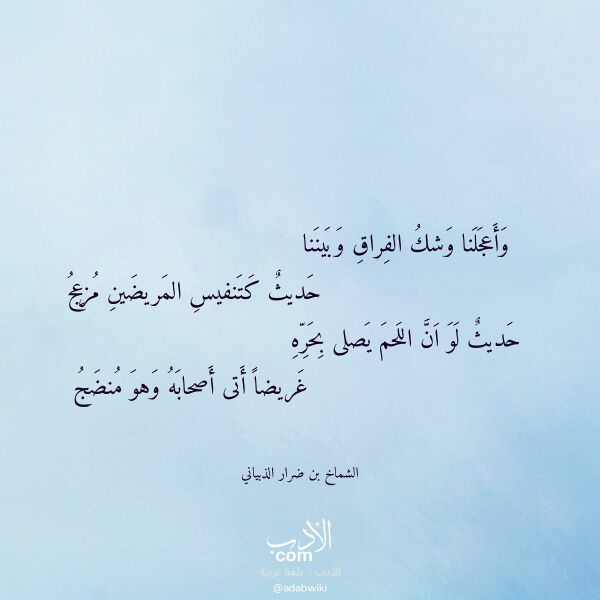 وَأَعجَلَنا وَشكُ الفِراقِ وَبَينَنا
حَديثٌ كَتَنفيسِ المَريضَينِ مُزعِجُ
حَديثٌ لَوَ اَنَّ اللَحمَ يَصلى بِحَرِّهِ
غَريضاً أَتى أَصحابَهُ وَهوَ مُنضَجُ
الشماخ بن ضرار الذبياني
الأدب
com
الأدب .. بلغة عربية
@adabwiki